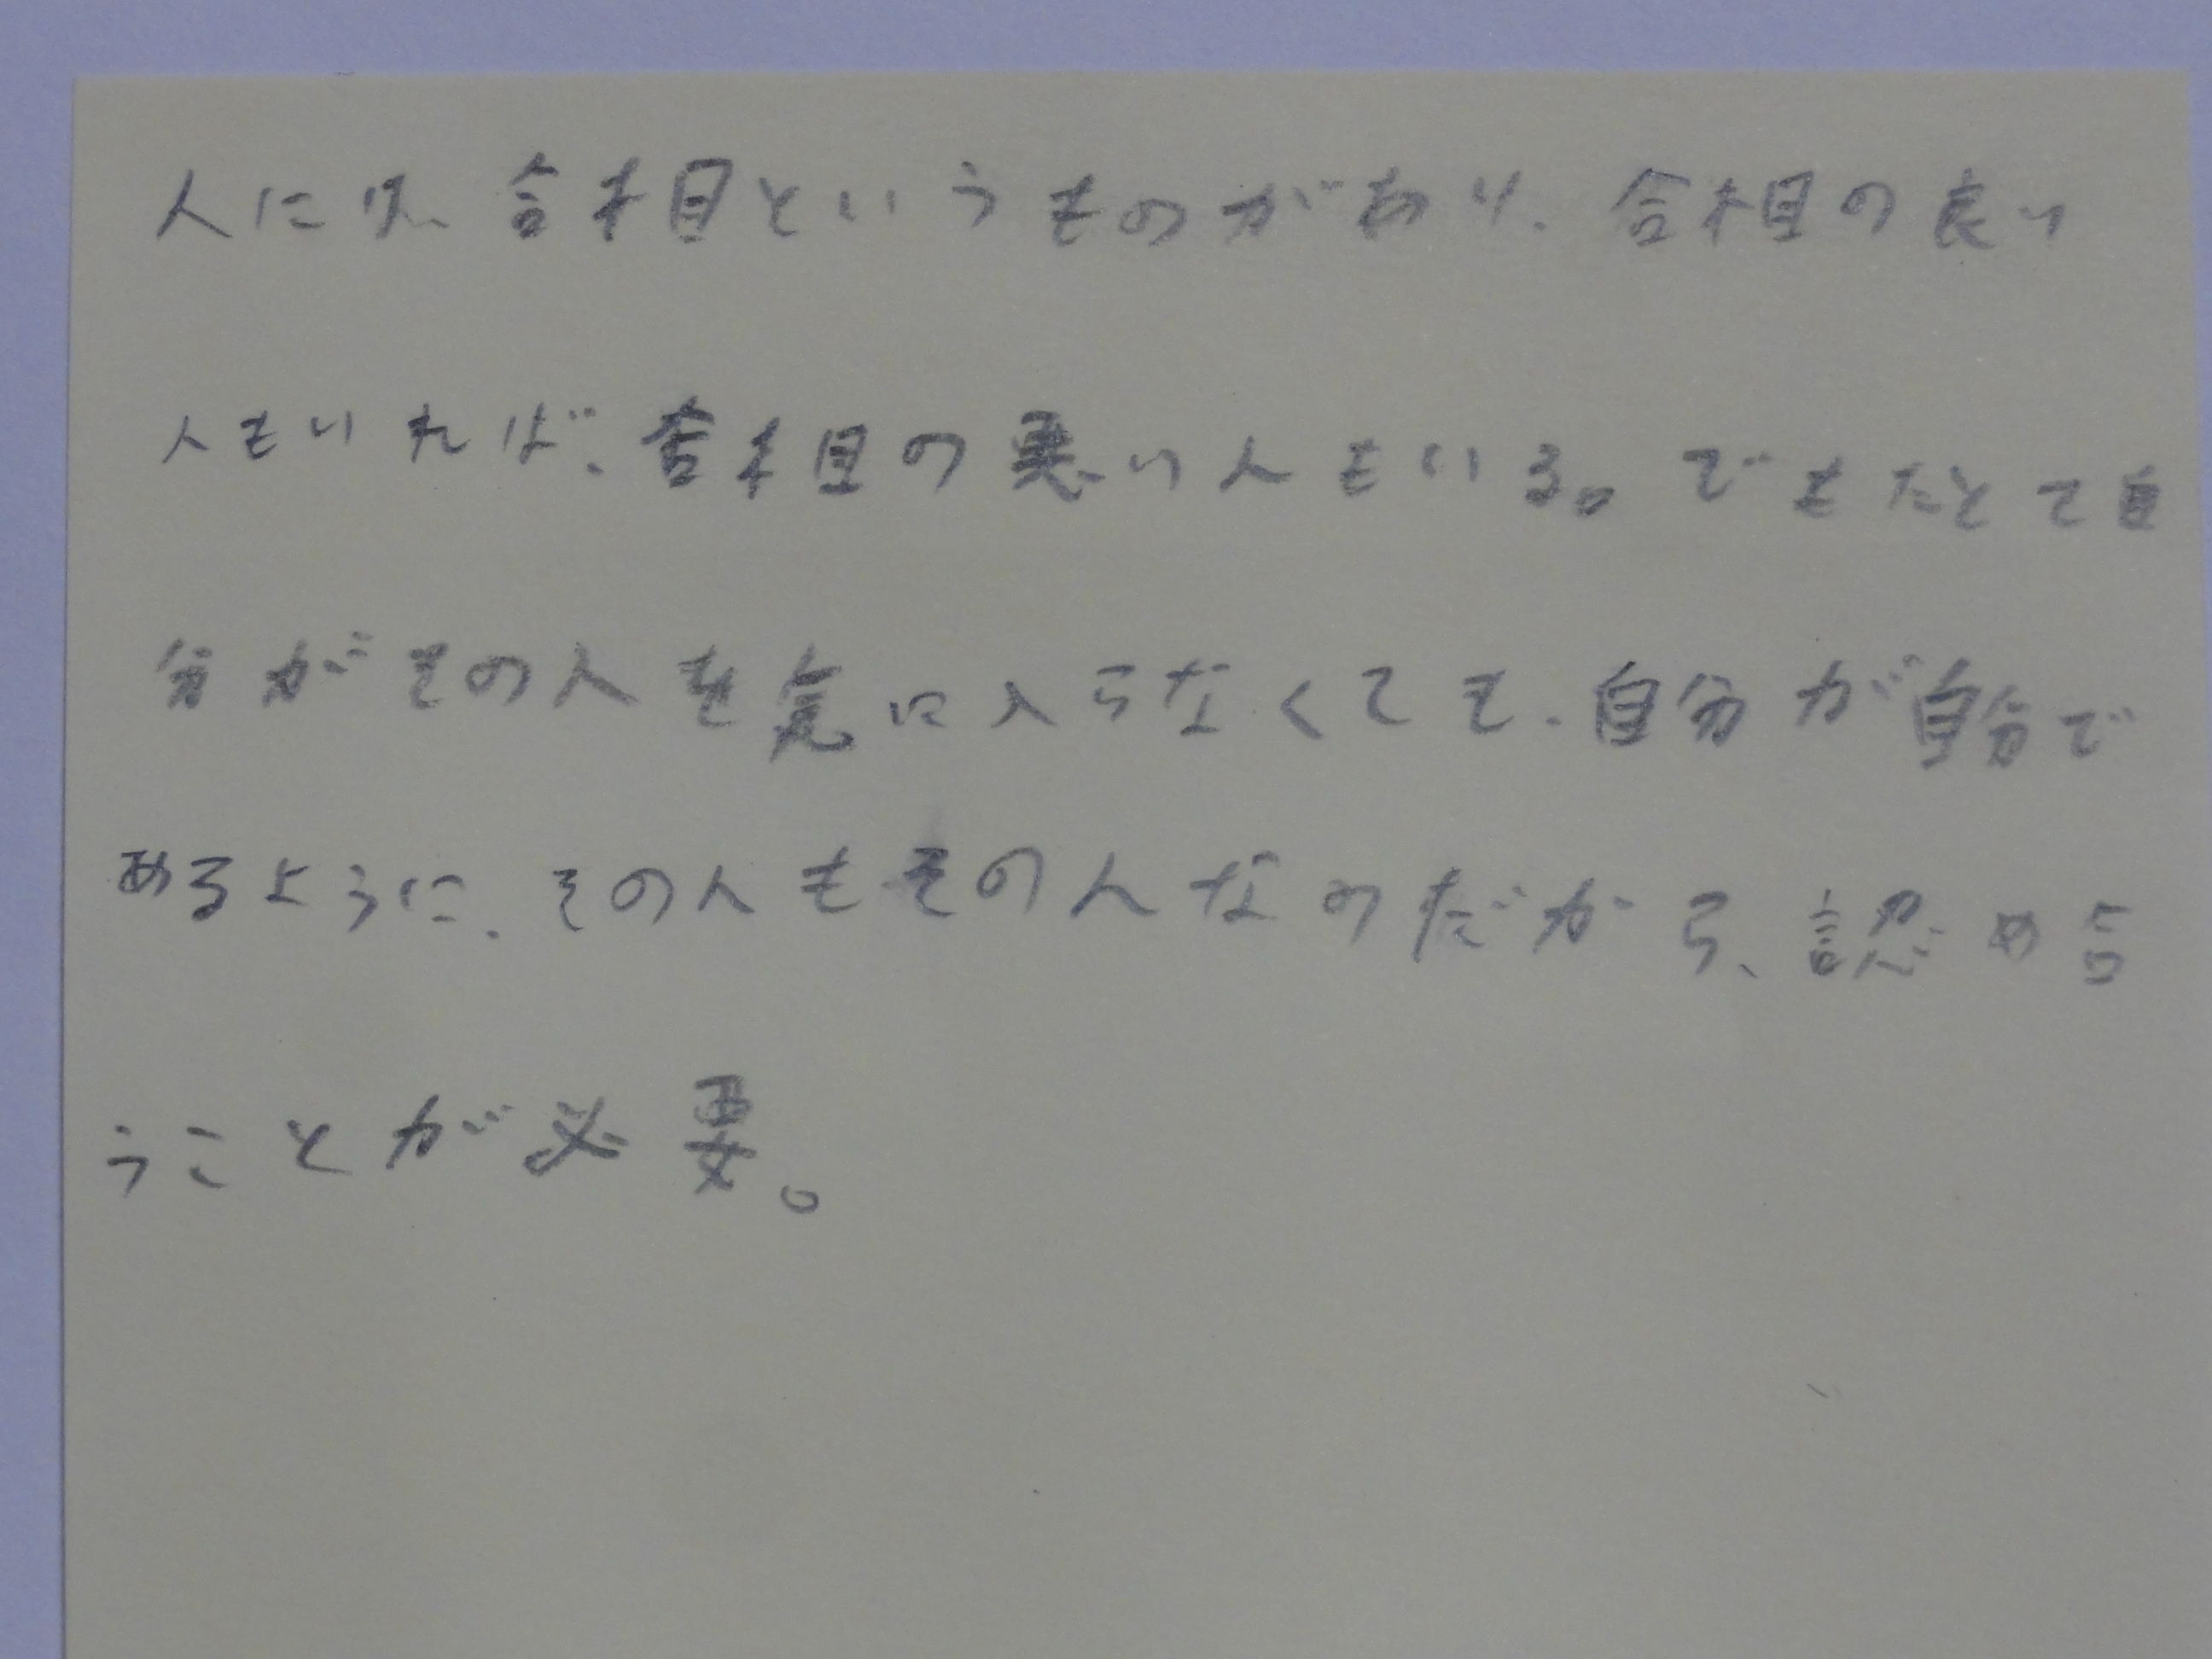 人には、合相というものがあり、合相の良い
人もいれば、合相の悪い人もいる。でもたとて自
分がその人を気に入らなくても、自分が自分で
あるように、その人もその人なのだから、認め合
うことが必要。